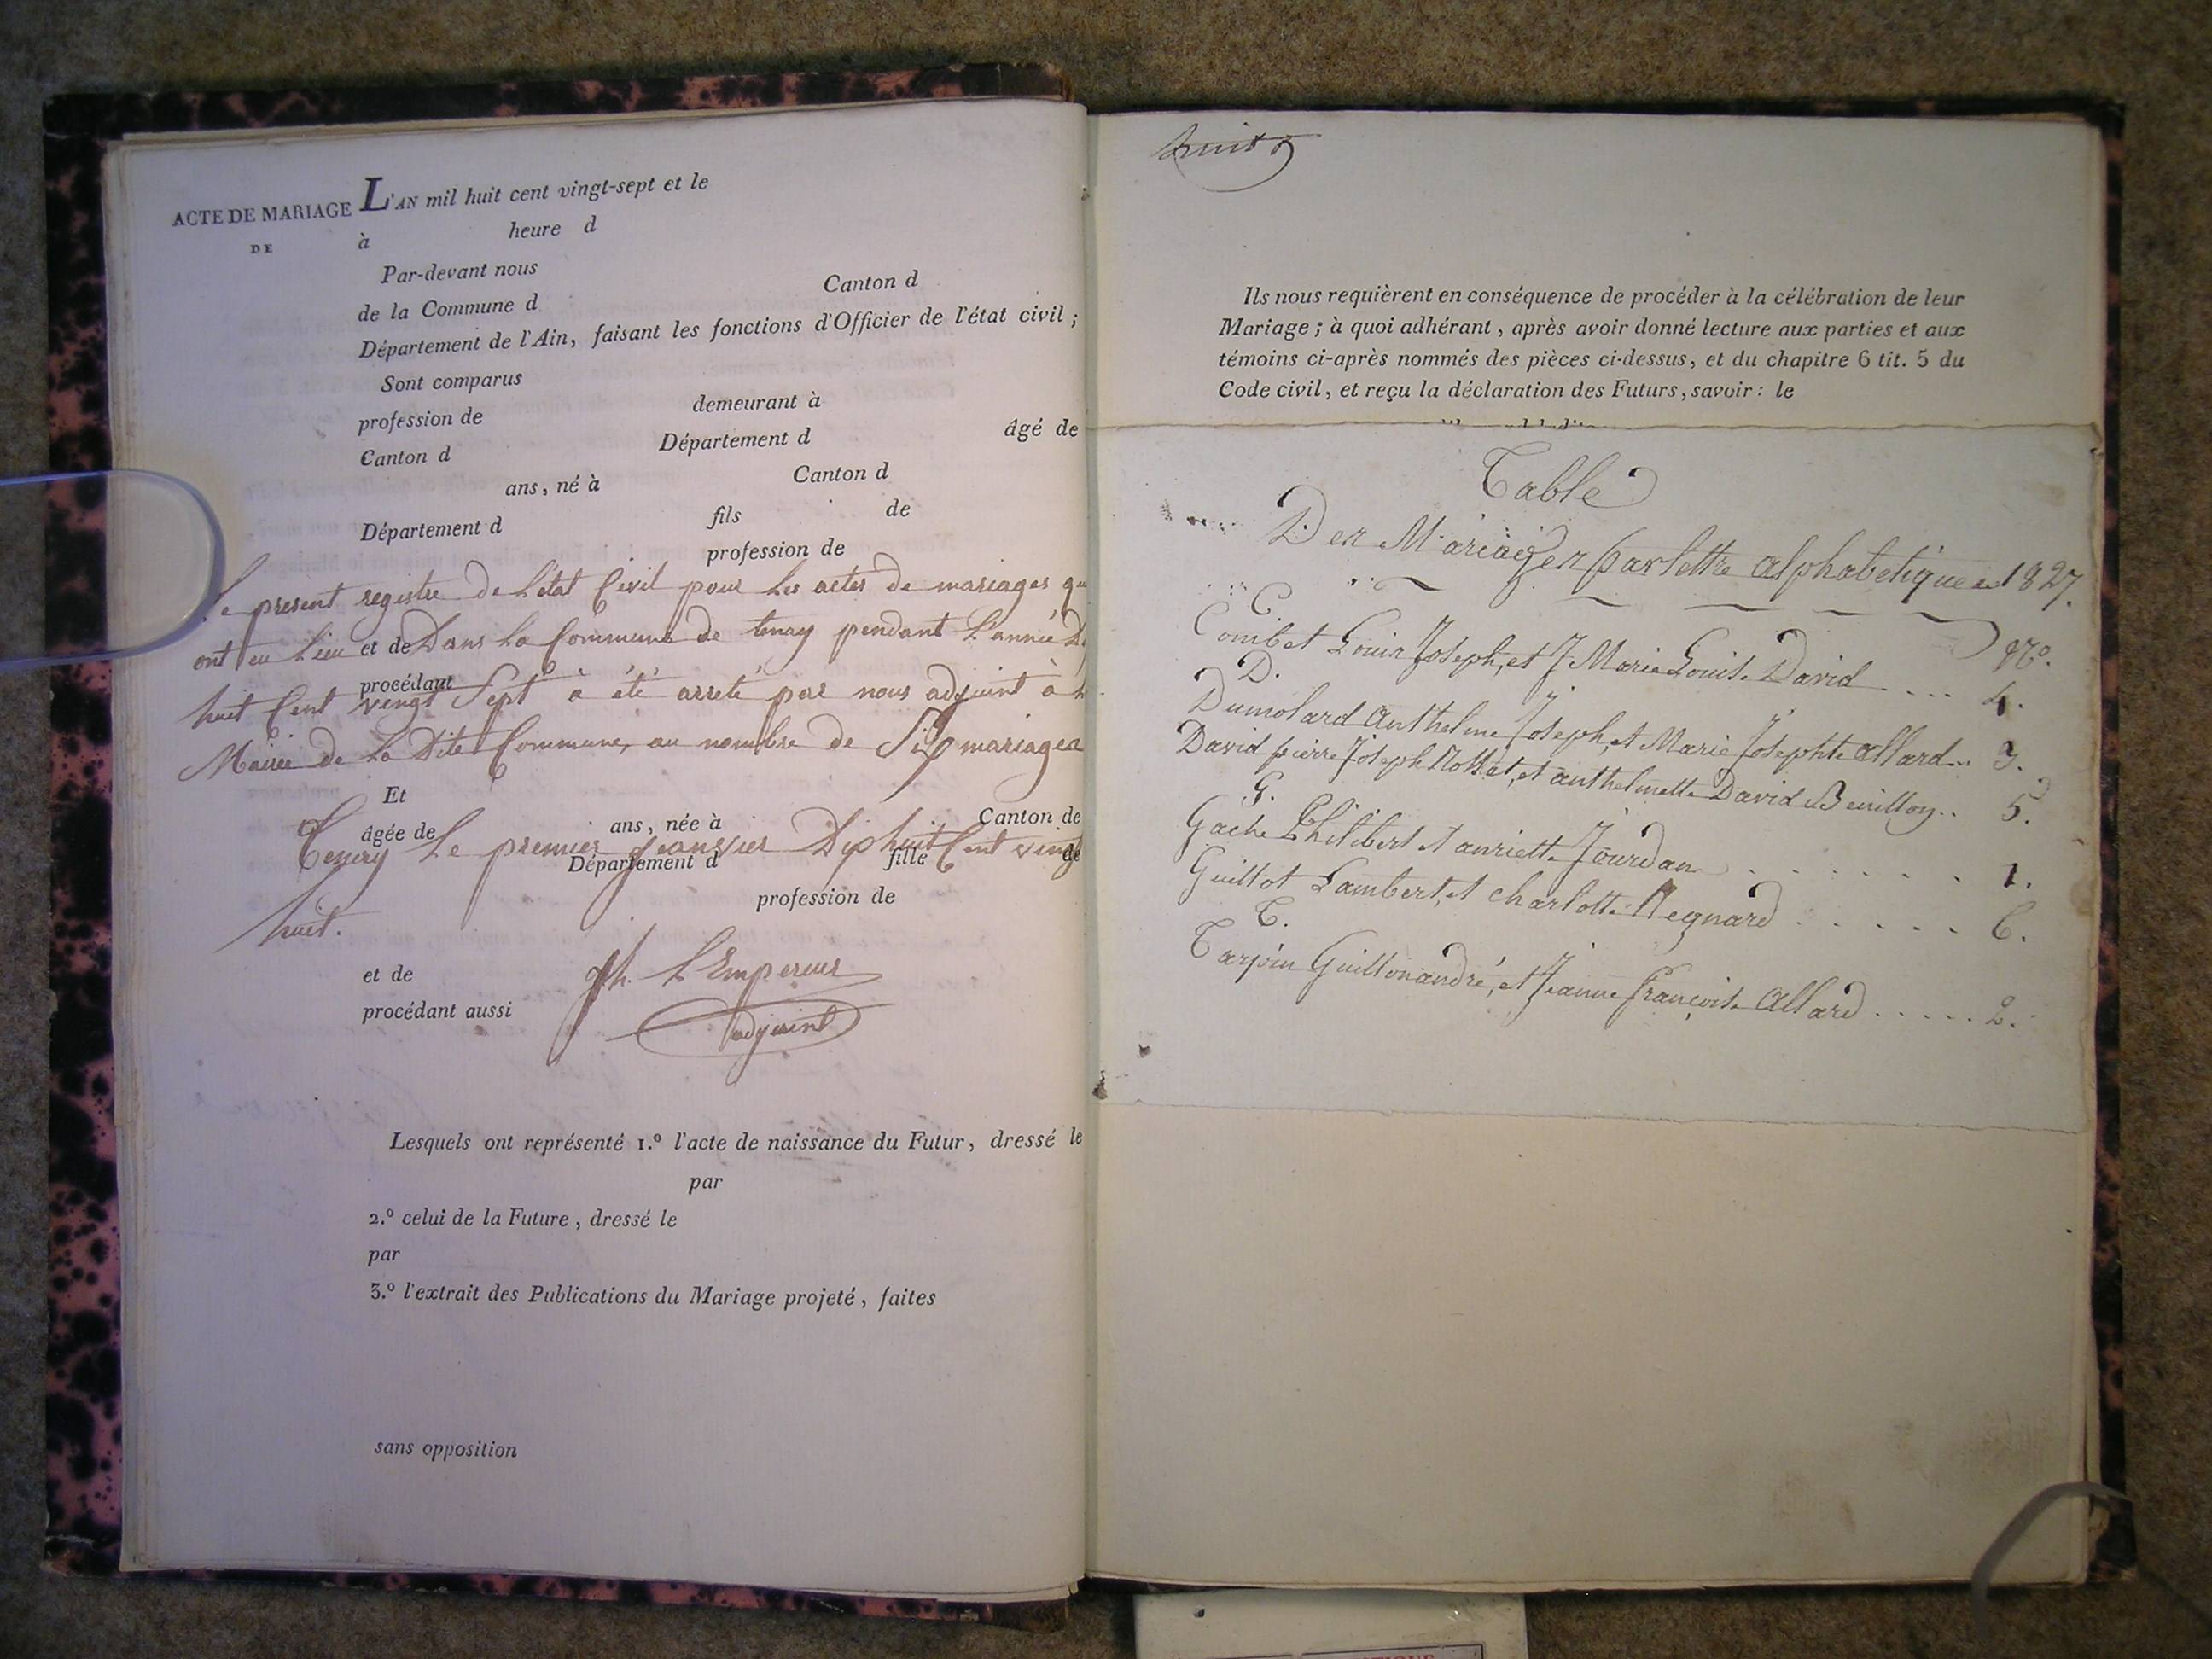 ACTE DE MARIAGE L'AN mil huit cent vingt-sept et le
DE à heure d
Par-devant nous
de la Commune d Canton d
Département de l'Ain, faisant les fonctions d'Officier de l'état civil ;
Sont comparus
profession de demeurant à
Canton d Département d âgé de
ans, né à Canton d
Département d fils de
profession de
Le present registre de L'état Civil pour Les actes de mariages qu
ont eu Lieu Dans La Commune de tenay pendant L'année
et de
procédant
huit Cent vingt Sept à été arreté par nous adjoint à
Mairie de La Dite Commune, au nombre de Six mariages
Et
âgée de ans, née à Canton de
Le premier Dix huit Cent vingt
Département d fille de
profession de
huit.
et de
procédant aussi
Jh. L'Empereur
adjoint
Lesquels ont représenté 1.º l'acte de naissance du Futur, dressé le
par
2.º celui de la Future, dressé le
par
3.º l'extrait des Publications du Mariage projeté, faites
sans opposition
huit
Ils nous requièrent en conséquence de procéder à la célébration de leur
Mariage ; à quoi adhérant, après avoir donné lecture aux parties et aux
témoins ci-après nommés des pièces ci-dessus, et du chapitre 6 tit. 5 du
Code civil, et reçu la déclaration des Futurs, savoir : le
Table
Des Mariages par lettre alphabetique 1827.
C. Nº.
Combet Louis Joseph, et J. Marie Louise David .... 4.
D.
Dumolard Anthelme Joseph, et Marie Josephte allard .. 3.
David pierre Joseph et anthelmette David .. 5.
G.
Gache Philibert et anriette Jourdan ....... 1.
Guillot Lambert, et charlotte Regnard ..... 6.
T.
Tarpin Guillon andré, et Jeanne françoise Allard ..... 2.